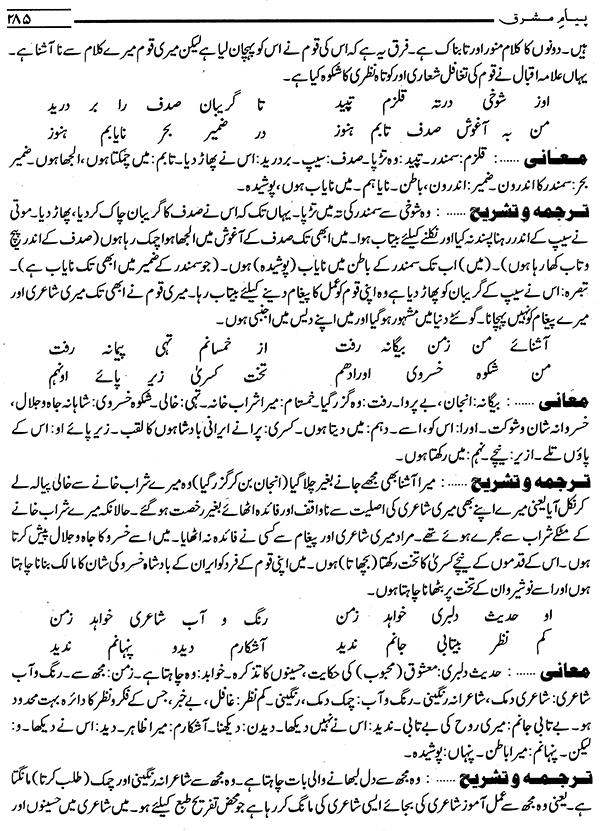 پیامِ مشرق ۲۸۵
ہیں۔ دونوں کا کلام منور اور تابناک ہے۔ فرق یہ ہے کہ اس کی قوم نے اس کو پہچان لیا ہے لیکن میری قوم میرے کلام سے نا آشنا ہے۔
یہاں علامہ اقبال نے قوم کی تغافل شعاری اور کوتاہ نظری کا شکوہ کیا ہے۔
اوز شوخی درتہ قلزم تپید تا گریبان صدف را بر درید
من بہ آغوش صدف تابم ہنوز در ضمیر بحر نایابم ہنوز
معانی ...... : قلزم: سمندر۔ تپید: وہ تڑپا۔ صدف: سیپ۔ بردرید: اس نے پھاڑ دیا۔ تابم: میں چمکتا ہوں، الجھا ہوں۔ ضمیر
بحر: سمندر کا اندرون۔ ضمیر: اندرون، باطن۔ نایابم: میں نایاب ہوں، پوشیدہ۔
ترجمہ و تشریح ...... : وہ شوخی سے سمندر کی تہ میں تڑپا۔ یہاں تک کہ اس نے صدف کا گریبان چاک کر دیا، پھاڑ دیا۔ موتی
نے سیپ کے اندر رہنا پسند نہ کیا اور نکلنے کیلئے بیتاب ہوا۔ میں ابھی تک صدف کے آغوش میں الجھا ہوا چمک رہا ہوں (صدف کے اندر پیچ
و تاب کھا رہا ہوں)۔ (میں) اب تک سمندر کے باطن میں نایاب (پوشیدہ) ہوں۔ (جو سمندر کے ضمیر میں ابھی تک نایاب ہے)۔
تبصرہ: اس نے سیپ کے گریبان کو پھاڑ دیا ہے وہ اپنی قوم کو عمل کا پیغام دینے کیلئے بیتاب رہا۔ میری قوم نے ابھی تک میری شاعری اور
میرے پیغام کو نہیں پہچانا۔ گوئٹے دنیا میں مشہور ہو گیا اور میں اپنے دیس میں اجنبی ہوں۔
آشنائے من زمن بیگانہ رفت از خمستانم تہی پیمانہ رفت
من شکوہ خسروی اورادہم تخت کسریٰ زیر پائے اونہم
معانی ...... : بیگانہ: انجان، بے پروا۔ رفت: وہ گزر گیا۔ خمستانم: میرا شراب خانہ۔ تہی: خالی۔ شکوہ خسروی: شاہانہ جاہ و جلال،
خسروانہ شان و شوکت۔ اورا: اس کو، اسے۔ دہم: میں دیتا ہوں۔ کسریٰ: پرانے ایرانی بادشاہوں کا لقب۔ زیر پائے او: اس کے
پاؤں تلے۔ از یر: نیچے۔ نہم: میں رکھتا ہوں۔
ترجمہ و تشریح ...... : میرا آشنا بھی مجھے جانے بغیر چلا گیا (انجان بن کر گزر گیا) وہ میرے شراب خانے سے خالی پیالہ لے
کر نکل آیا یعنی میرے اپنے بھی میری شاعری کی اصلیت سے ناواقف اور فائدہ اٹھائے بغیر رخصت ہو گئے۔ حالانکہ میرے شراب خانے
کے مٹکے شراب سے بھرے ہوئے تھے۔ مراد میری شاعری اور پیغام سے کسی نے فائدہ نہ اٹھایا۔ میں اسے خسرو کا جاہ و جلال پیش کرتا
ہوں۔ اس کے قدموں کے نیچے کسریٰ کا تخت رکھتا (بچھاتا) ہوں۔ میں اپنی قوم کے فرد کو ایران کے بادشاہ خسرو کی شان کا مالک بنانا چاہتا
ہوں اور اسے نوشیرواں کے تخت پر بٹھانا چاہتا ہوں۔
او حدیث دلبری خواہد زمن رنگ و آب شاعری خواہد زمن
کم نظر بیتابی جانم ندید آشکارم دیدو پنہانم ندید
معانی ...... : حدیث دلبری: معشوق (محبوب) کی حکایت، حسینوں کا تذکرہ۔ خواہد: وہ چاہتا ہے۔ زمن: مجھ سے۔ رنگ و آب
شاعری: شاعری دمک، شاعرانہ رنگینی۔ رنگ و آب: چمک دمک، رنگینی۔ کم نظر: غافل، بے خبر، جس کے فکر و نظر کا دائرہ بہت محدود
ہو۔ بے تابی جانم: میری روح کی بے تابی۔ ندید: اس نے نہیں دیکھا۔ دیدن: دیکھنا۔ آشکارم: میرا ظاہر۔ دید: اس نے دیکھا۔ و:
لیکن۔ پنہانم: میرا باطن۔ پنہاں: پوشیدہ۔
ترجمہ و تشریح ...... : وہ مجھ سے دل لبھانے والی بات چاہتا ہے۔ وہ مجھ سے شاعرانہ رنگینی اور چمک (طلب کرتا) مانگتا
ہے۔ یعنی وہ مجھ سے عمل آموز شاعری کی بجائے ایسی شاعری کی مانگ کر رہا ہے جو محض تفریح طبع کیلئے ہو۔ میں شاعری میں حسینوں اور